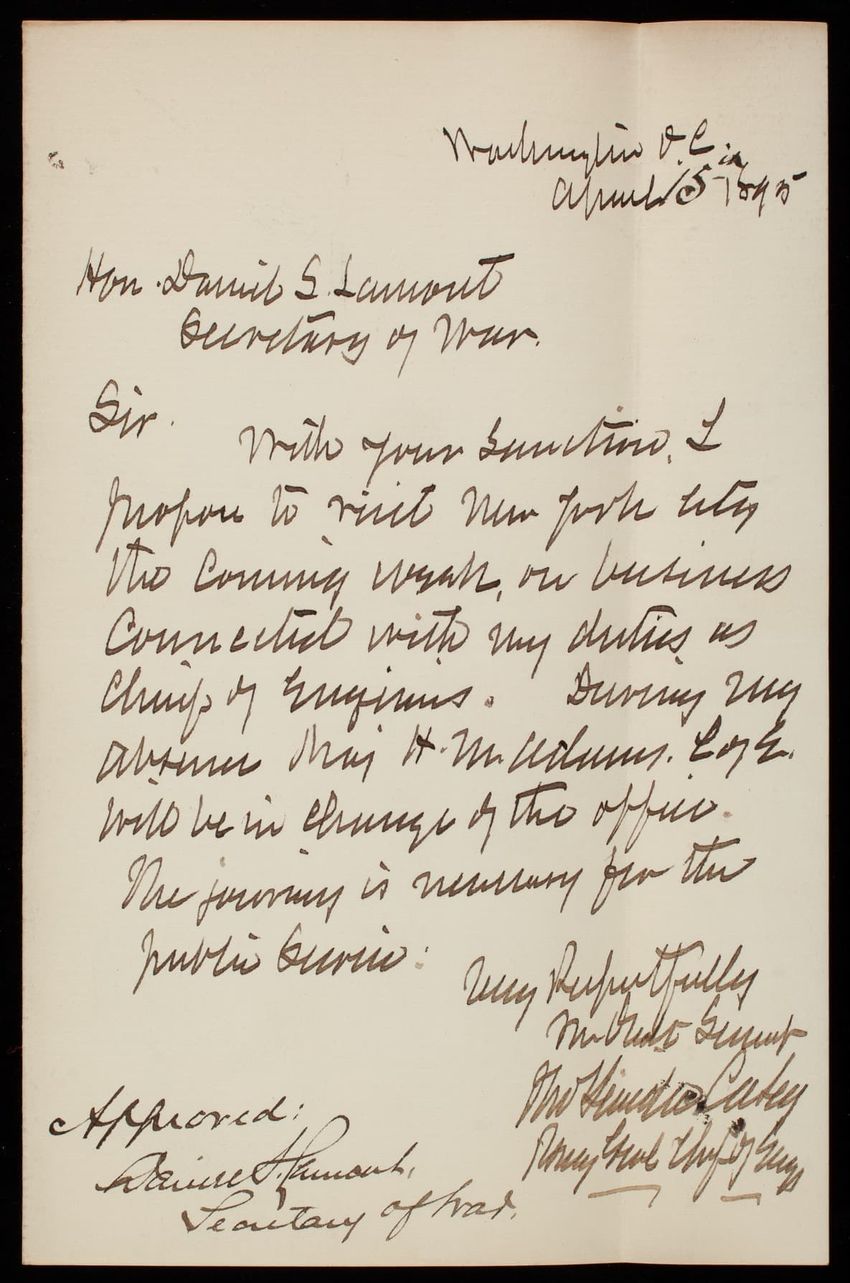 Washington D.C.
April 15th 1895
Hon. Daniel S. Lamont
Secretary of War.
Sir.
With your sanction, I
propose to visit New York City
the coming week, on business
connected with my duties as
Chief of Engineers. During my
absence Maj H. M. Adams. C of E.
will be in charge of the office.
The journey is necessary for the
public service.
Very Respectfully
Your Obdt Servant
Thos Lincoln Casey
Brig Genl Chf of Engs
Approved:
Daniel S. Lamont,
Secretary of War.